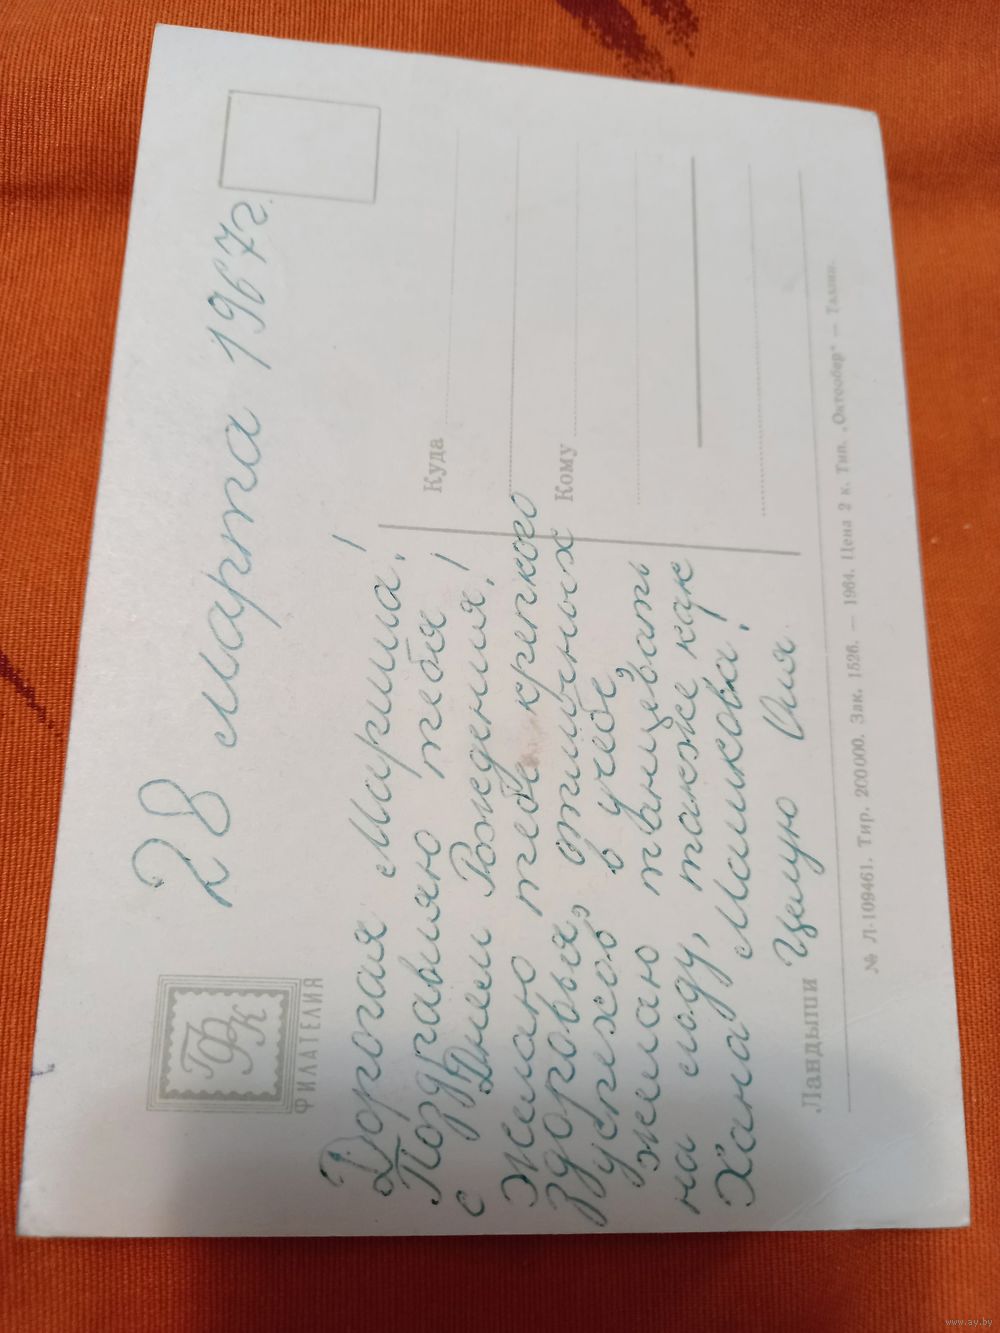 28 марта 1967 г.
ГФК
ФИЛАТЕЛИЯ
Дорогая Мариша!
Поздравляю тебя!
с Днем Рождения!
желаю тебе крепкого
здоровья, отличных
успехов в учебе,
желаю танцевать
на льду, также как
Хана Машкова!
Целую Оля
Куда
Кому
Ландыши
№ Л-109461. Тир. 200000. Зак. 1526. — 1964. Цена 2 к. Тип. „Октообер" — Таллин.
www.ay.by